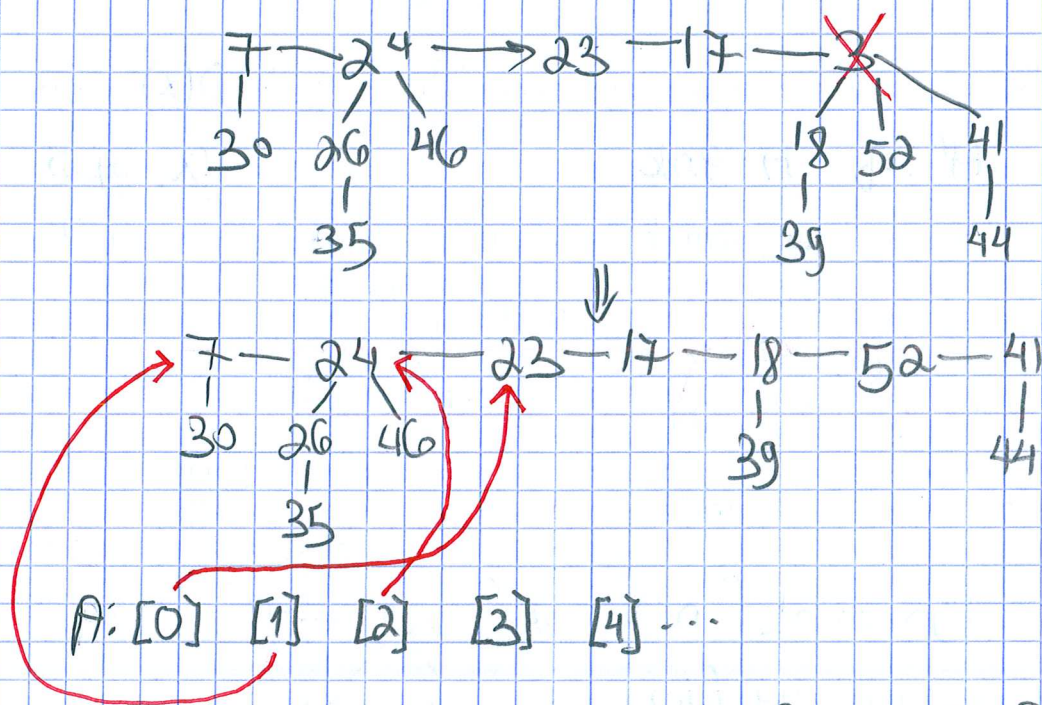 7 24 23 17 3
30 26 46 18 52 41
35 39 44
7 24 23 17 18 52 41
30 26 46 39 44
35
A: [0] [1] [2] [3] [4] ...